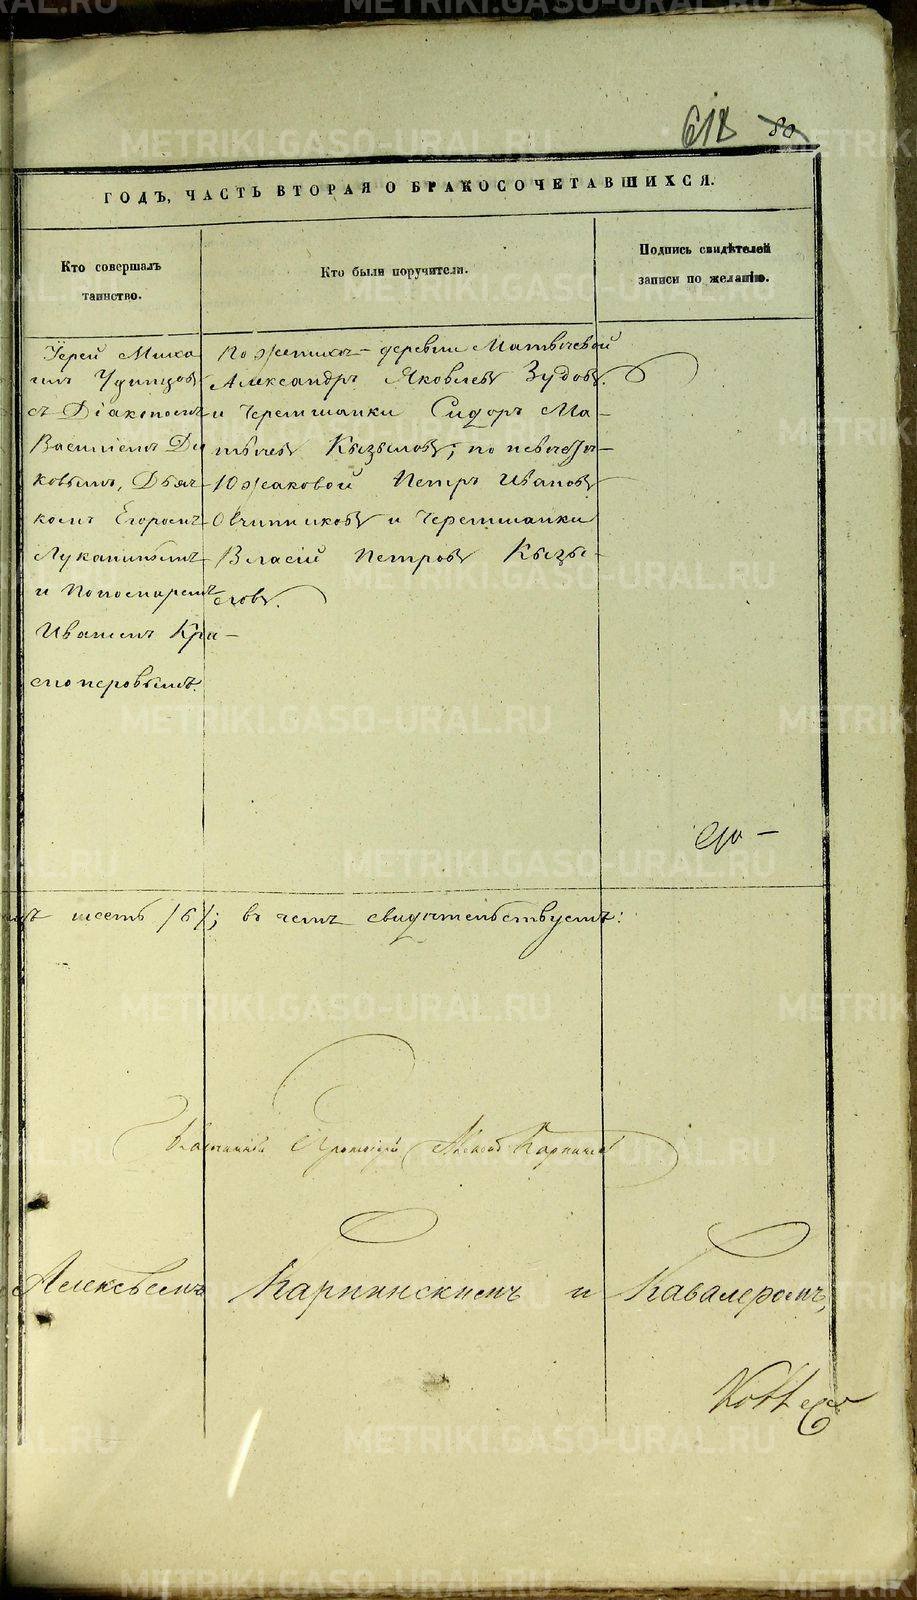 618 80
ГОДЪ, ЧАСТЬ ВТОРАЯ О БРАКОСОЧЕТАВШИХСЯ.
Кто совершалъ
таинство.
Кто были поручители.
Подпись свидѣтелей
записи по желанію.
Іерей Миха
илъ Удинцовъ
съ Діакономъ
Василіемъ Ди
ковымъ, Дьяч-
комъ Егоромъ
Лукан
и Пономаремъ
Иваномъ Кра-
сноперовымъ.
По женихѣ – деревни Матвѣевой
Александръ Яковлевъ Зудовъ.
и Черемшанки Сидоръ Ма-
твѣевъ Кызыловъ; по невѣстѣ –
Южаковой Петръ Ивановъ
Овчинниковъ и Черемшанки
Власій Петровъ Кызы-
ловъ.
шесть /6/; въ чемъ свидѣтельствуемъ:
Протоіерей Алексѣй Карпинскій
Алексѣемъ Карпинскимъ и Кавалеромъ,
METRIKI.GASO-URAL.RU